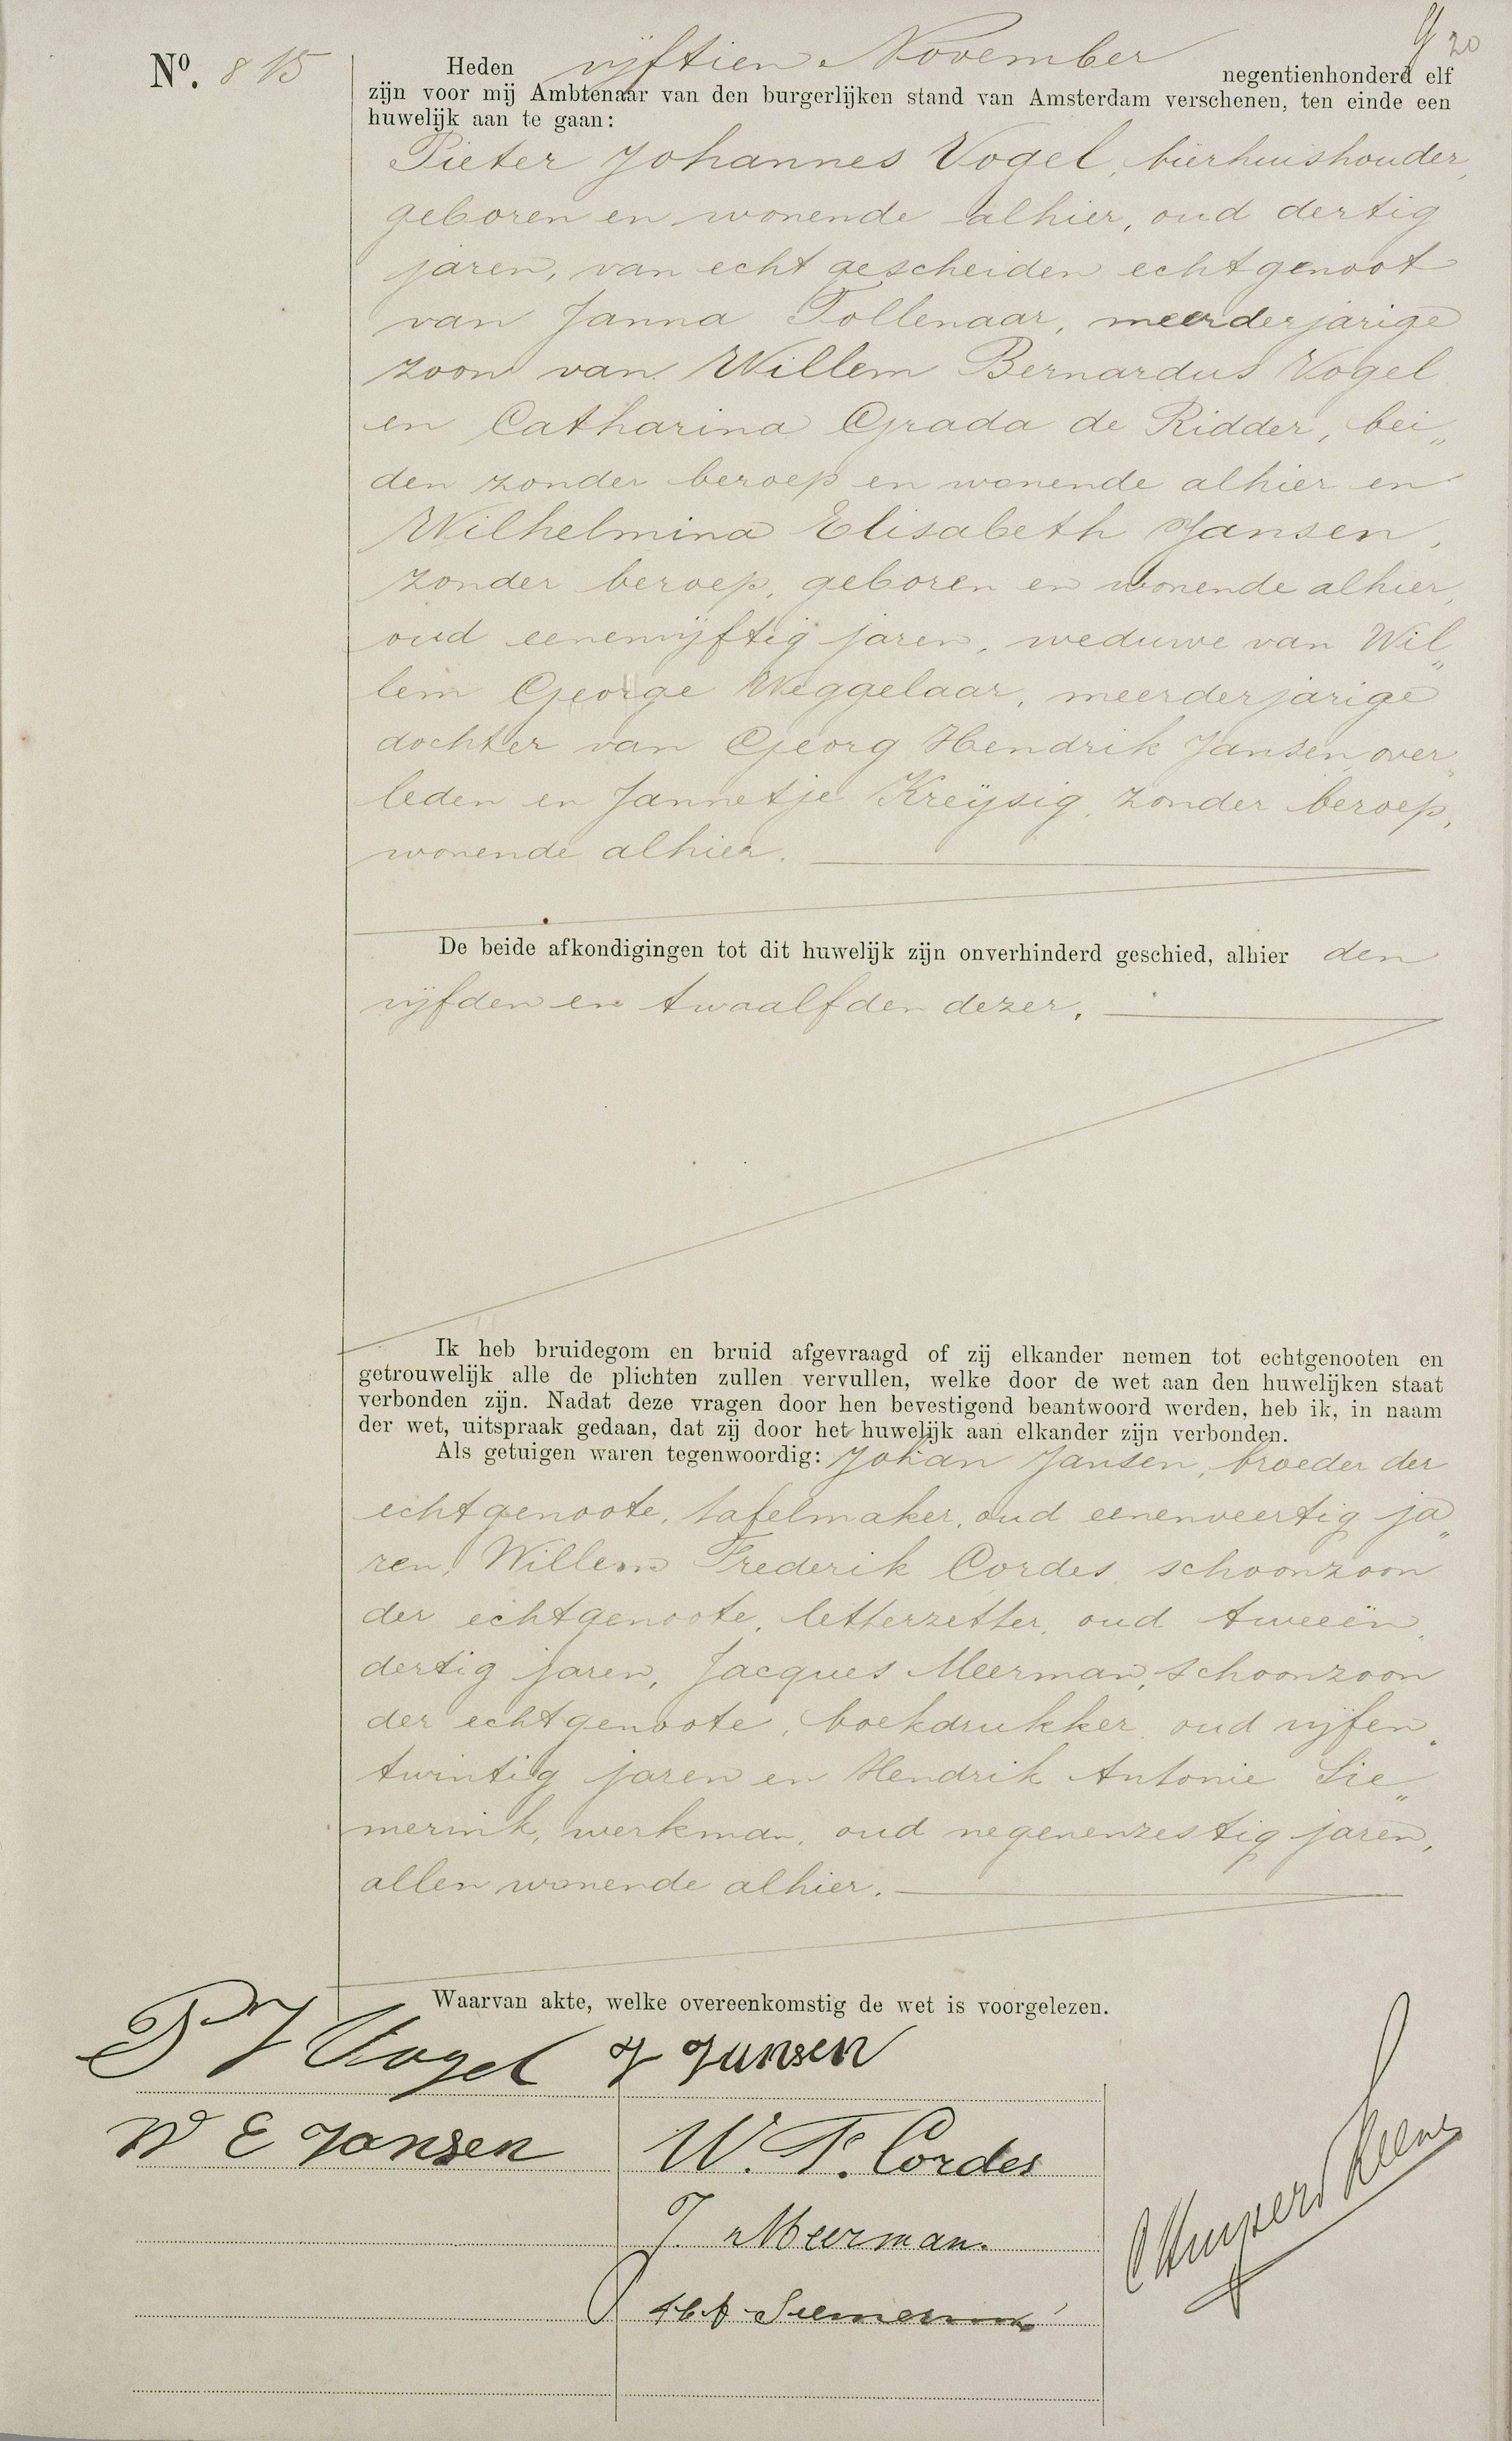 No. 815
20
Heden vijftien November negentienhonderd elf
zijn voor mij Ambtenaar van den burgerlijken stand van Amsterdam verschenen, ten einde een
huwelijk aan te gaan:
Pieter Johannes Vogel, bierhuishouder,
geboren en wonende alhier, oud dertig
jaren, van echt gescheiden echtgenoot
van Janna Tollenaar, meerderjarige
zoon van Willem Bernardus Vogel
en Catharina Grada de Ridder, bei„
den zonder beroep en wonende alhier en
Wilhelmina Elisabeth Jansen,
zonder beroep, geboren en wonende alhier,
oud eenenvijftig jaren, weduwe van Wil„
lem George Weggelaar, meerderjarige
dochter van Georg Hendrik Jansen over„
leden en Jannetje Kreijsig, zonder beroep,
wonende alhier.
De beide afkondigingen tot dit huwelijk zijn onverhinderd geschied, alhier den
vijfden en twaalfden dezer.
Ik heb bruidegom en bruid afgevraagd of zij elkander nemen tot echtgenooten en
getrouwelijk alle de plichten zullen vervullen, welke door de wet aan den huwelijken staat
verbonden zijn. Nadat deze vragen door hen bevestigend beantwoord werden, heb ik, in naam
der wet, uitspraak gedaan, dat zij door het huwelijk aan elkander zijn verbonden.
Als getuigen waren tegenwoordig: Johan Jansen, broeder der
echtgenoote, tafelmaker, oud eenenveertig ja„
ren, Willem Frederik Cordes, schoonzoon
der echtgenoote, letterzetter, oud tweeën„
dertig jaren, Jacques Meerman, schoonzoon
der echtgenoote, boekdrukker, oud vijfen„
twintig jaren en Hendrik Antonie Sie„
merink, werkman, oud negenenzestig jaren,
allen wonende alhier.
Waarvan akte, welke overeenkomstig de wet is voorgelezen.
P J Vogel
J Jansen
W E Jansen
W. F. Cordes
J. Meerman.
H A Siemerink